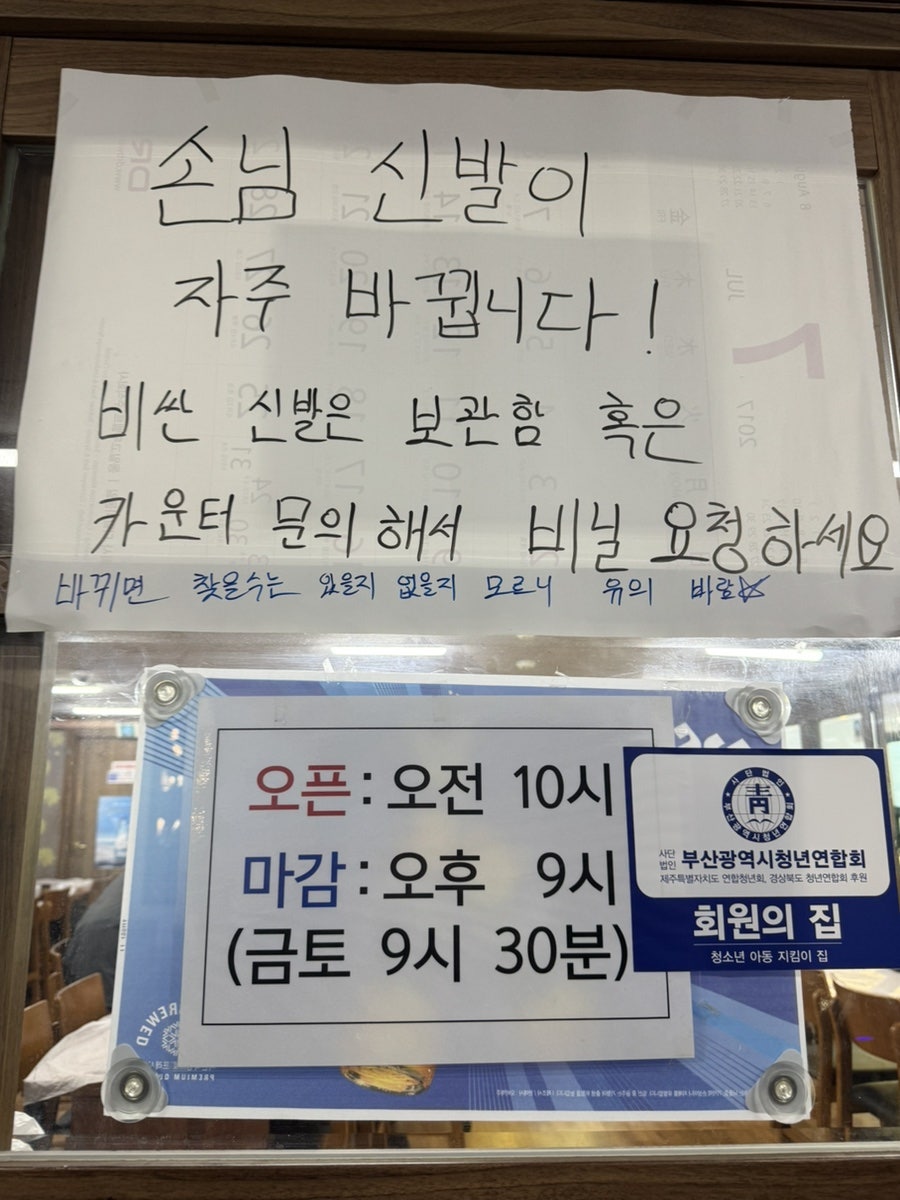 손님 신발이
자주 바뀝니다!
비싼 신발은 보관함 혹은
카운터 문의해서 비닐 요청하세요
바뀌면 찾을수는 있을지 없을지 모르니 유의 바람
오픈 : 오전 10시
마감 : 오후 9시
(금토 9시 30분)
사단법인
부산광역시청년연합회
靑
사단법인 부산광역시청년연합회
제주특별자치도 연합청년회, 경상북도 청년연합회 후원
회원의 집
청소년 아동 지킴이 집
JUL
7
2017
PREMIUM